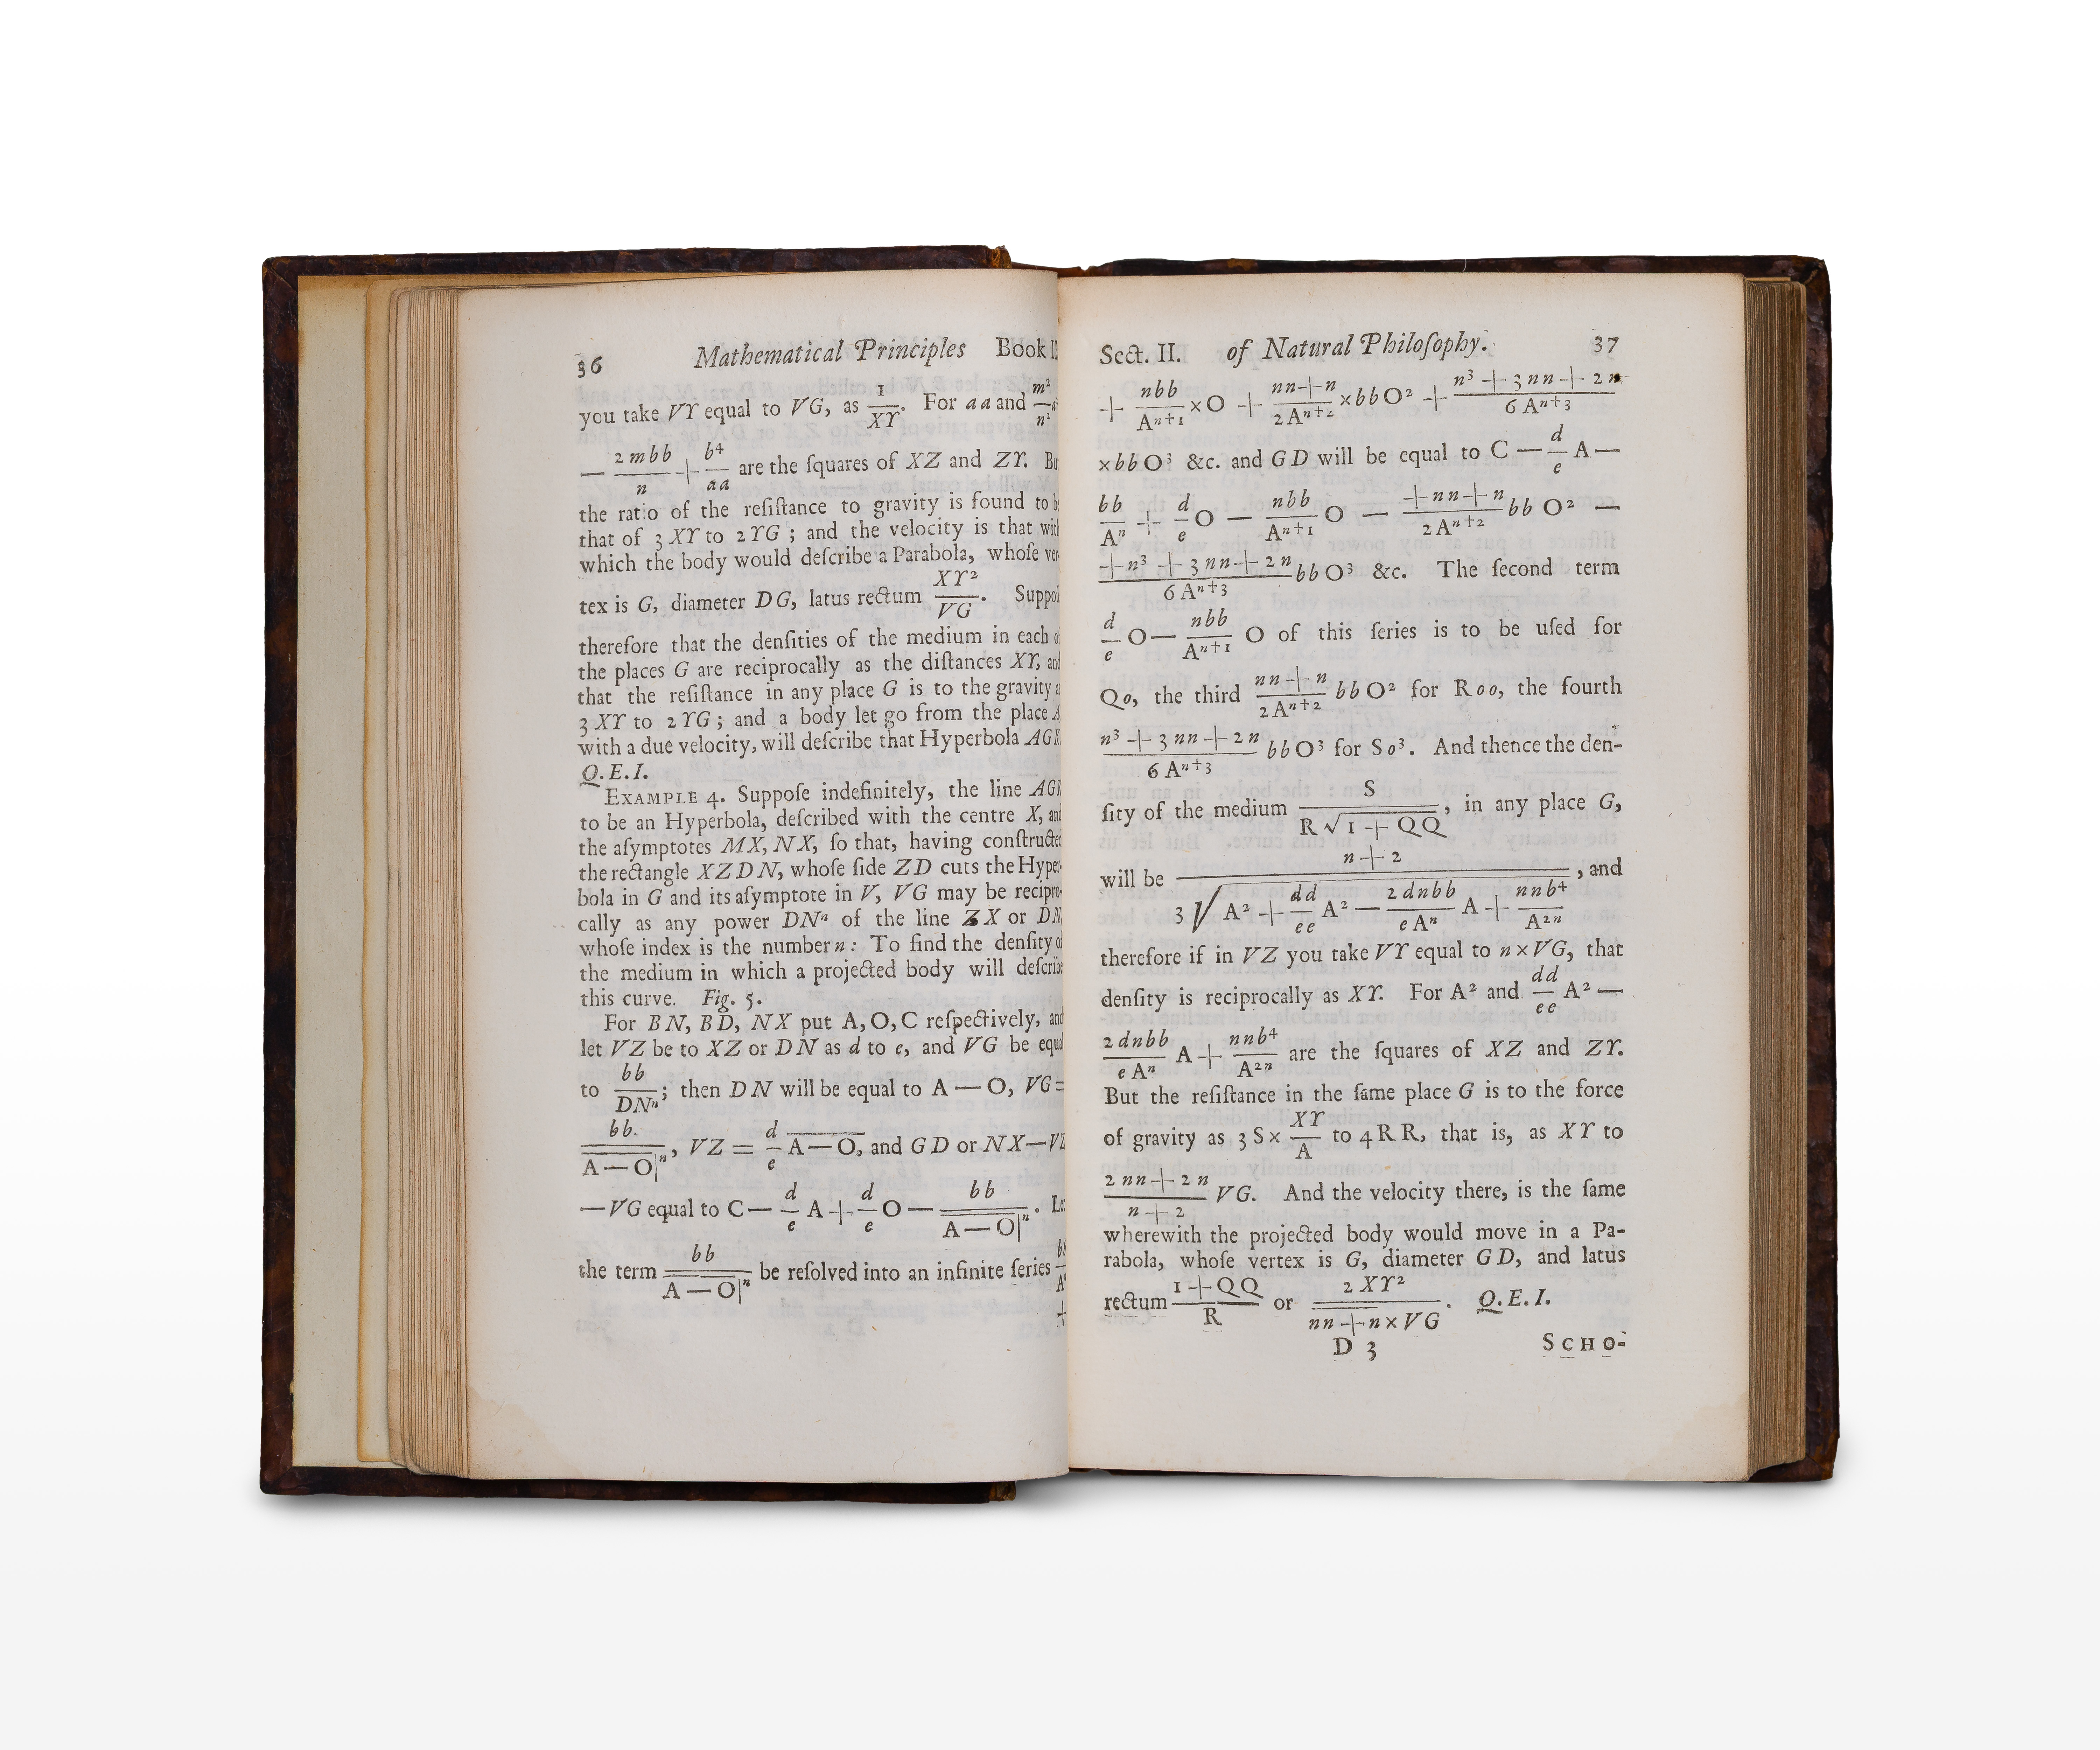 36 Mathematical Principles Book II
you take VY equal to VG, as 1/XY. For aa and m²/n²
— 2mbb/n + b⁴/aa are the ſquares of XZ and ZY. But
the ratio of the reſiſtance to gravity is found to be
that of 3 XY to 2 YG; and the velocity is that with
which the body would deſcribe a Parabola, whoſe ver-
tex is G, diameter DG, latus rectum XY²/VG. Suppoſe
therefore that the denſities of the medium in each of
the places G are reciprocally as the diſtances XY, and
that the reſiſtance in any place G is to the gravity as
3 XY to 2 YG; and a body let go from the place A,
with a due velocity, will deſcribe that Hyperbola AGK.
Q.E.I.
EXAMPLE 4. Suppoſe indefinitely, the line AGK
to be an Hyperbola, deſcribed with the centre X, and
the aſymptotes MX, NX, ſo that, having conſtructed
the rectangle XZDN, whoſe ſide ZD cuts the Hyper-
bola in G and its aſymptote in V, VG may be recipro-
cally as any power DNⁿ of the line ZX or DN,
whoſe index is the number n: To find the denſity of
the medium in which a projected body will deſcribe
this curve. Fig. 5.
For BN, BD, NX put A, O, C reſpectively, and
let VZ be to XZ or DN as d to e, and VG be equal
to bb/DNⁿ; then DN will be equal to A — O, VG =
bb/A — O|ⁿ, VZ = d/e A — O, and GD or NX — VZ
— VG equal to C — d/e A + d/e O — bb/A — O|ⁿ. Let
the term bb/A — O|ⁿ be reſolved into an infinite ſeries bb/Aⁿ
+
Sect. II. of Natural Philoſophy. 37
+ nbb/Aⁿ⁺¹ × O + nn + n/2Aⁿ⁺² × bb O² + n³ + 3nn + 2n/6Aⁿ⁺³
× bb O³ &c. and GD will be equal to C — d/e A —
bb/Aⁿ + d/e O — nbb/Aⁿ⁺¹ O — + nn + n/2Aⁿ⁺² bb O² —
+ n³ + 3nn + 2n/6Aⁿ⁺³ bb O³ &c. The ſecond term
d/e O — nbb/Aⁿ⁺¹ O of this ſeries is to be uſed for
Qo, the third nn + n/2Aⁿ⁺² bb O² for Roo, the fourth
n³ + 3nn + 2n/6Aⁿ⁺³ bb O³ for So³. And thence the den-
ſity of the medium S/R√1 + QQ, in any place G,
will be n + 2/3√A² + dd/ee A² — 2dnbb/eAⁿ A + nnb⁴/A²ⁿ, and
therefore if in VZ you take VY equal to n × VG, that
denſity is reciprocally as XY. For A² and dd/ee A² —
2dnbb/eAⁿ A + nnb⁴/A²ⁿ are the ſquares of XZ and ZY.
But the reſiſtance in the ſame place G is to the force
of gravity as 3 S × XY/A to 4 RR, that is, as XY to
2nn + 2n/n + 2 VG. And the velocity there, is the ſame
wherewith the projected body would move in a Pa-
rabola, whoſe vertex is G, diameter GD, and latus
rectum 1 + QQ/R or 2XY²/nn + n × VG. Q.E.I.
D 3 SCHO-